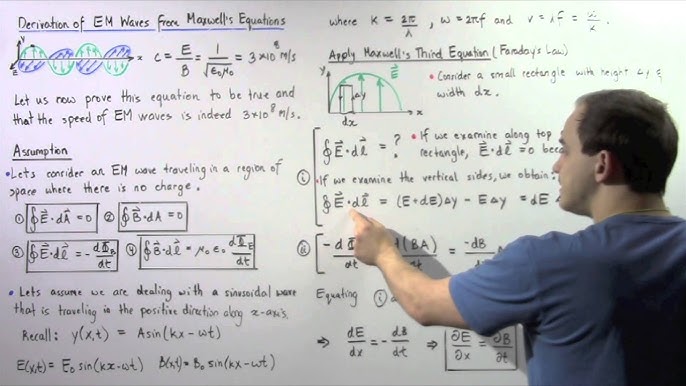 Derivation of EM Waves from Maxwell's Equations
y
E
x
c = E/B = 1/√ε₀μ₀ = 3×10⁸ m/s
Let us now prove this equation to be true and
that the speed of EM waves is indeed 3×10⁸ m/s.
Assumption
• Lets consider an EM wave traveling in a region of
space where there is no charge.
① ∮E⃗·dA⃗ = 0 ② ∮B⃗·dA = 0
③ ∮E⃗·dl⃗ = -dΦ_B/dt ④ ∮B⃗·dl⃗ = μ₀ε₀ dΦ_E/dt
• Lets assume we are dealing with a sinusoidal wave
that is traveling in the positive direction along x-axis.
Recall: y(x,t) = A sin(kx-ωt)
E(x,t) = E₀ sin(kx-ωt) B(x,t) = B₀ sin(kx-ωt)
where k = 2π/λ, ω = 2πf and v = λf = ω/k.
Apply Maxwell's Third Equation (Faraday's Law)
y
E⃗
Δy
x
dx
• Consider a small rectangle with height Δy &
width dx.
∮E⃗·dl⃗ = ?
• If we examine along top
rectangle, E⃗·dl⃗ = 0 bec
ⓘ • If we examine the vertical sides, we obtain:
∮E⃗·dl⃗ = (E+dE)Δy - EΔy = dE
ⓘⓘ -dΦ/dt (BA)/dt = -dB/dt
Equating ⓘ
⇒ dE/dx = -dB/dt ⇒ ∂E/∂x = ∂B/∂t